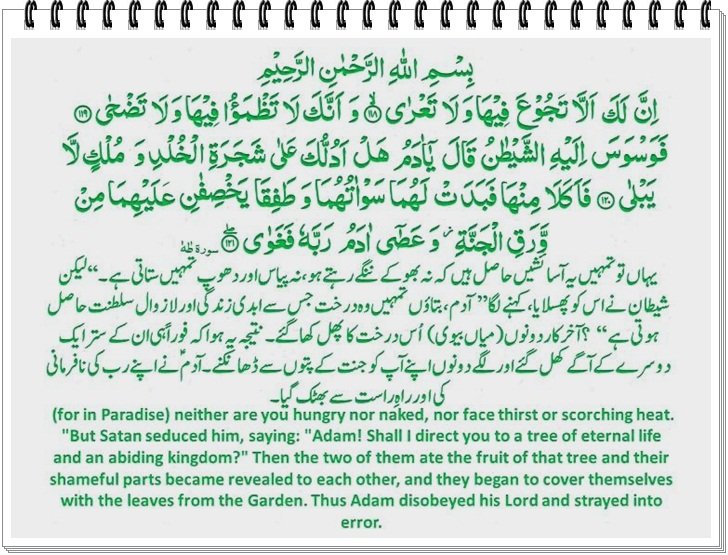 بِسْمِ اللهِ الرَّحْمٰنِ الرَّحِيْمِ
اِنَّ لَكَ اَلَّا تَجُوْعَ فِيْهَا وَلَا تَعْرٰى ﴿۱۱۸﴾ وَ اَنَّكَ لَا تَظْمَؤُا فِيْهَا وَلَا تَضْحٰى ﴿۱۱۹﴾
فَوَسْوَسَ اِلَيْهِ الشَّيْطٰنُ قَالَ يٰۤاٰدَمُ هَلْ اَدُلُّكَ عَلٰى شَجَرَةِ الْخُلْدِ وَ مُلْكٍ لَّا
يَبْلٰى ﴿۱۲۰﴾ فَاَكَلَا مِنْهَا فَبَدَتْ لَهُمَا سَوْاٰتُهُمَا وَ طَفِقَا يَخْصِفٰنِ عَلَيْهِمَا مِنْ
وَّرَقِ الْجَنَّةِ ۫ وَ عَصٰۤى اٰدَمُ رَبَّهٗ فَغَوٰى ﴿۱۲۱﴾ سورة طٰهٰ
یہاں تو تمہیں یہ آسائشیں حاصل ہیں کہ نہ بھوکے ننگے رہتے ہو، نہ پیاس اور دھوپ تمہیں ستاتی ہے۔“ لیکن
شیطان نے اس کو پھسلایا، کہنے لگا ”آدم، بتاؤں تمہیں وہ درخت جس سے ابدی زندگی اور لازوال سلطنت حاصل
ہوتی ہے“ ؟ آخر کار دونوں (میاں بیوی) اُس درخت کا پھل کھا گئے۔ نتیجہ یہ ہوا کہ فوراً ہی ان کے ستر ایک
دوسرے کے آگے کھل گئے اور لگے دونوں اپنے آپ کو جنت کے پتوں سے ڈھانکنے۔ آدمؑ نے اپنے رب کی نافرمانی
کی اور راہِ راست سے بھٹک گیا۔
(for in Paradise) neither are you hungry nor naked, nor face thirst or scorching heat.
"But Satan seduced him, saying: "Adam! Shall I direct you to a tree of eternal life
and an abiding kingdom?" Then the two of them ate the fruit of that tree and their
shameful parts became revealed to each other, and they began to cover themselves
with the leaves from the Garden. Thus Adam disobeyed his Lord and strayed into
error.